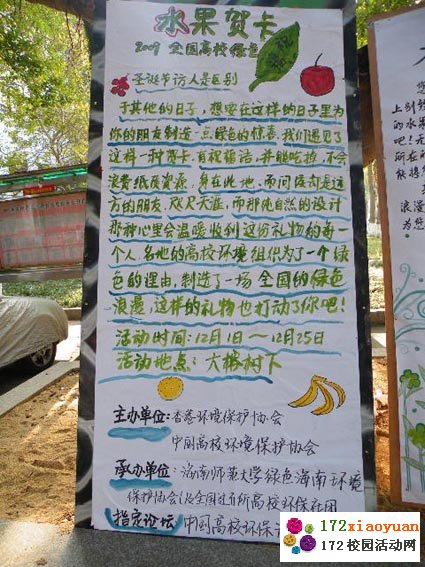 水果贺卡
2009 全国高校绿色
圣诞节访人是区别
于其他的日子，想要在这样的日子里为
你的朋友制造一点绿色的惊喜，我们遇见了
这样一种贺卡，有祝福语，并能吃掉，不会
浪费纸质资源，身在此地，而问候却是远
方的朋友，咫尺天涯，而那纯自然的设计
那种心里会温暖收到这份礼物的每一
个人，各地的高校环境组织为了一个绿
色的理由，制造了一场全国的绿色
浪漫，这样的礼物也打动了你吧！
活动时间：12月1日～12月25日
活动地点：大榕树下
主办单位：香港环境保护协会
中国高校环境保护协会
承办单位：海南师范大学绿色海南环境
保护协会以及全国过百所高校环保社团
指定论坛：中国高校环保
上别
的水果
吧！
所在的
能将
浪漫
为您
172xiaoyuan
172校园活动网